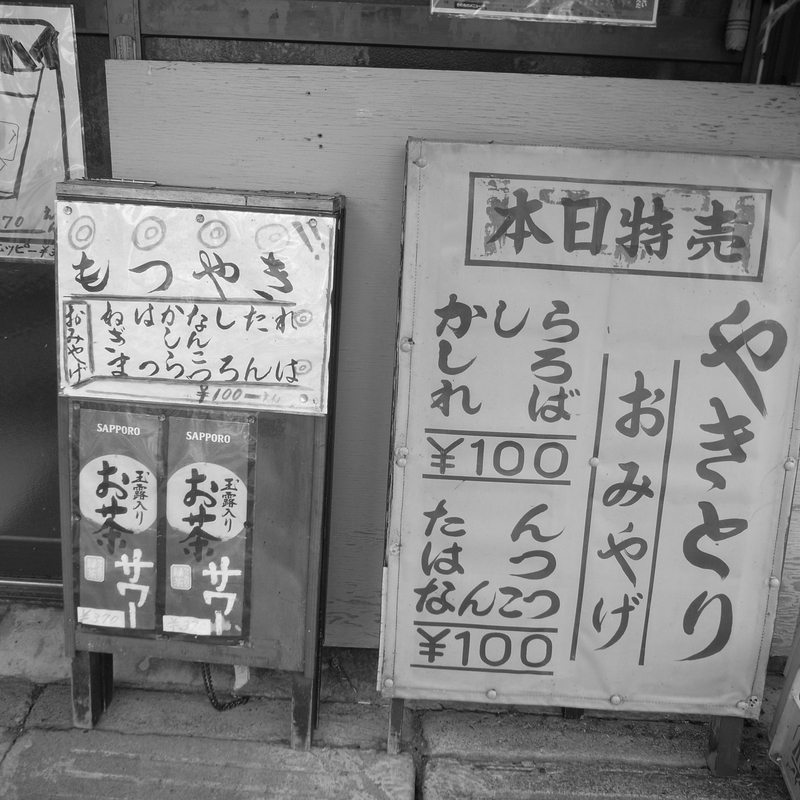 もつやき
れば
たん
しろ
なんこつ
かしら
はつ
ねぎま
おみやげ
¥100
SAPPORO
玉露入り
お茶
サワー
¥370
SAPPORO
玉露入り
お茶
サワー
本日特売
やきとり
おみやげ
かしら
しろ
れば
¥100
たん
はつ
なんこつ
¥100